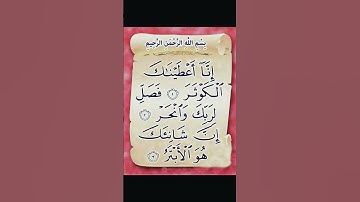 بِسْمِ اللَّهِ الرَّحْمَٰنِ الرَّحِيمِ
إِنَّآ أَعْطَيْنَٰكَ
ٱلْكَوْثَرَ ١ فَصَلِّ
لِرَبِّكَ وَٱنْحَرْ ٢
إِنَّ شَانِئَكَ
هُوَ ٱلْأَبْتَرُ ٣